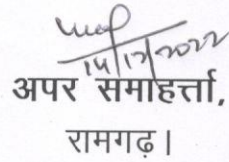 14/12/2022
अपर समाहर्त्ता,
रामगढ़।